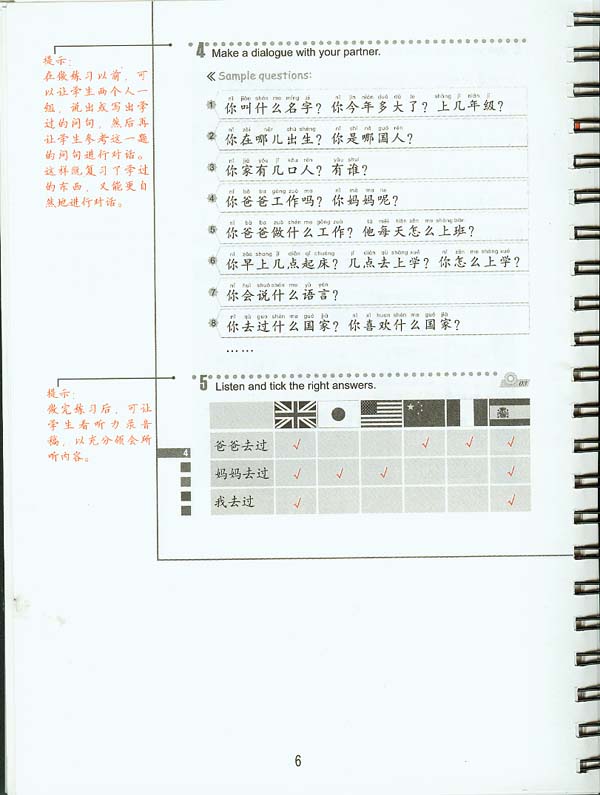 提示：
在做练习以前，可
以让学生两个人一
组，说出或写出学
过的问句，然后再
让学生参考这一题
的问句进行对话。
这样既复习了学过
的东西，又能更自
然地进行对话。
4 Make a dialogue with your partner.
Sample questions:
nǐ jiào shén me míng zi nǐ jīn nián duō dà le shàng jǐ nián jí
1 你叫什么名字？ 你今年多大了？ 上几年级？
nǐ zài nǎr chū shēng nǐ shì nǎ guó rén
2 你在哪儿出生？ 你是哪国人？
nǐ jiā yǒu jǐ kǒu rén yǒu shuí
3 你家有几口人？ 有谁？
nǐ bà ba gōng zuò ma nǐ mā ma ne
4 你爸爸工作吗？ 你妈妈呢？
nǐ bà ba zuò shén me gōng zuò tā měi tiān zěn me shàng bān
5 你爸爸做什么工作？ 他每天怎么上班？
nǐ zǎo shang jǐ diǎn qǐ chuáng jǐ diǎn qù shàng xué nǐ zěn me shàng xué
6 你早上几点起床？ 几点去上学？ 你怎么上学？
nǐ huì shuō shén me yǔ yán
7 你会说什么语言？
nǐ qù guo shén me guó jiā nǐ xǐ huan shén me guó jiā
8 你去过什么国家？ 你喜欢什么国家？
……
提示：
做完练习后，可让
学生看听力录音
稿，以充分领会所
听内容。
5 Listen and tick the right answers.
03
爸爸去过
妈妈去过
我去过
4
6